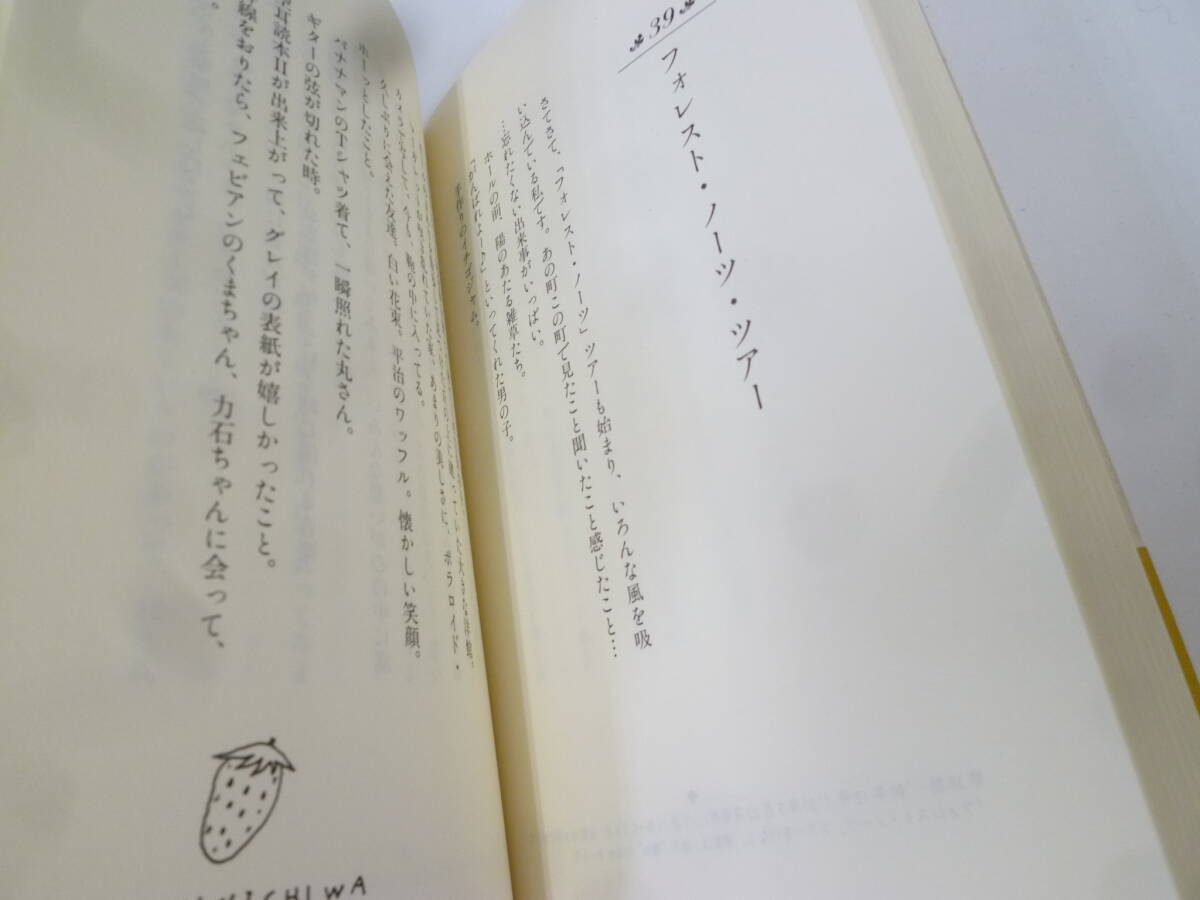 39
フォレスト・ノーツ・ツアー
さてさて、「フォレスト・ノーツ」ツアーも始まり、いろんな風を吸
い込んでいる私です。あの町この町で見たこと聞いたこと感じたこと…
…忘れたくない出来事がいっぱい。
ホールの前、陽のあたる雑草たち。
「がんばれよー♪」といってくれた男の子。
手作りのイチゴジャム。
建っていた大きな洋館。
あまりの美しさに、ポラロイド・
鞄の中に入ってる。
久しぶりに会えた友達。白い花束。平治のワッフル。懐かしい笑顔。
ホーっとしたこと。
バナナマンのTシャツ着て、一瞬照れた丸さん。
ギターの弦が切れた時。
耳読本IIが出来上がって、グレイの表紙が嬉しかったこと。
線をおりたら、フェビアンのくまちゃん、力石ちゃんに会って、
。
ICHIWA